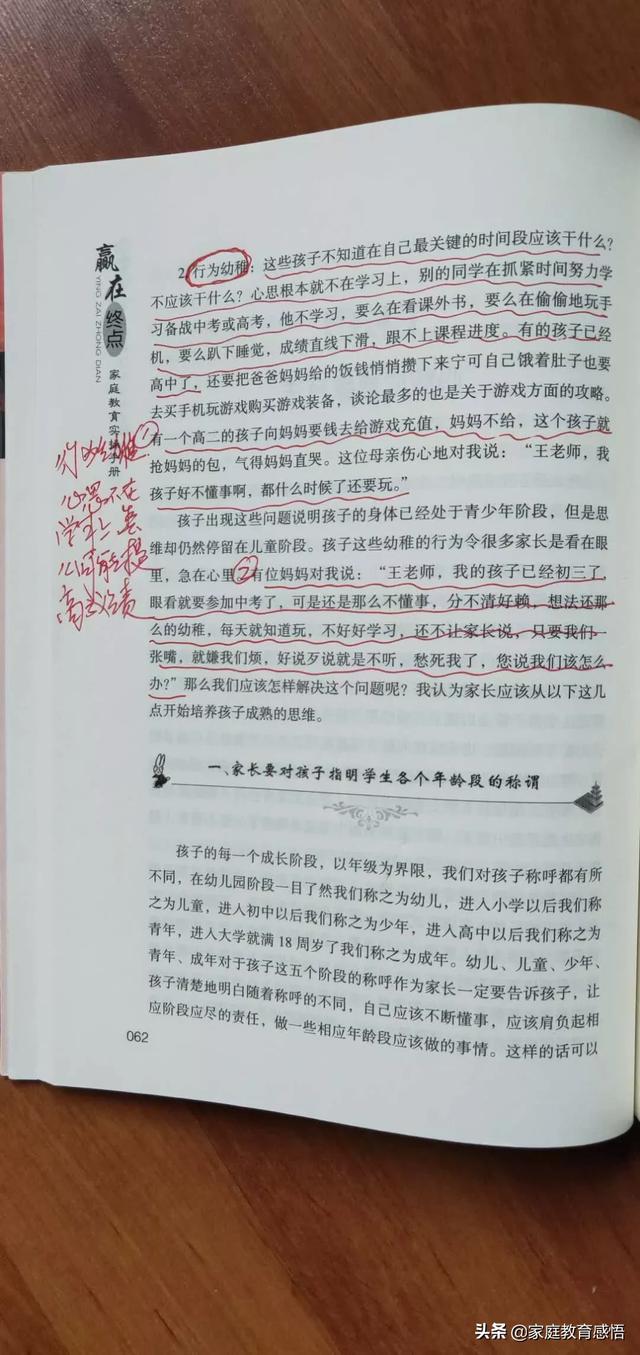 赢在终点
YING ZAI ZHONG DIAN
家庭教育实操手册
2. 行为幼稚：这些孩子不知道在自己最关键的时间段应该干什么？
不应该干什么？心思根本就不在学习上，别的同学在抓紧时间努力学
习备战中考或高考，他不学习，要么在看课外书，要么在偷偷地玩手
机，要么趴下睡觉，成绩直线下滑，跟不上课程进度。有的孩子已经
高中了，还要把爸爸妈妈给的饭钱悄悄攒下来宁可自己饿着肚子也要
去买手机玩游戏购买游戏装备，谈论最多的也是关于游戏方面的攻略。
有一个高二的孩子向妈妈要钱去给游戏充值，妈妈不给，这个孩子就
抢妈妈的包，气得妈妈直哭。这位母亲伤心地对我说：“王老师，我
孩子好不懂事啊，都什么时候了还要玩。”
孩子出现这些问题说明孩子的身体已经处于青少年阶段，但是思
维却仍然停留在儿童阶段。孩子这些幼稚的行为令很多家长是看在眼
里，急在心里②有位妈妈对我说：“王老师，我的孩子已经初三了，
眼看就要参加中考了，可是还是那么不懂事，分不清好赖，想法还那
么的幼稚，每天就知道玩，不好好学习，还不让家长说，只要我们一
张嘴，就嫌我们烦，好说歹说就是不听，愁死我了，您说我们该怎么
办？”那么我们应该怎样解决这个问题呢？我认为家长应该从以下这几
点开始培养孩子成熟的思维。
行为幼稚①
心思不在
学习上怎
么可能提
高成绩
一、家长要对孩子指明学生各个年龄段的称谓
孩子的每一个成长阶段，以年级为界限，我们对孩子称呼都有所
不同，在幼儿园阶段一目了然我们称之为幼儿，进入小学以后我们称
之为儿童，进入初中以后我们称之为少年，进入高中以后我们称之为
青年，进入大学就满 18 周岁了我们称之为成年。幼儿、儿童、少年、
青年、成年对于孩子这五个阶段的称呼作为家长一定要告诉孩子，让
孩子清楚地明白随着称呼的不同，自己应该不断懂事，应该肩负起相
应阶段应尽的责任，做一些相应年龄段应该做的事情。这样的话可以
062
头条 @家庭教育感悟